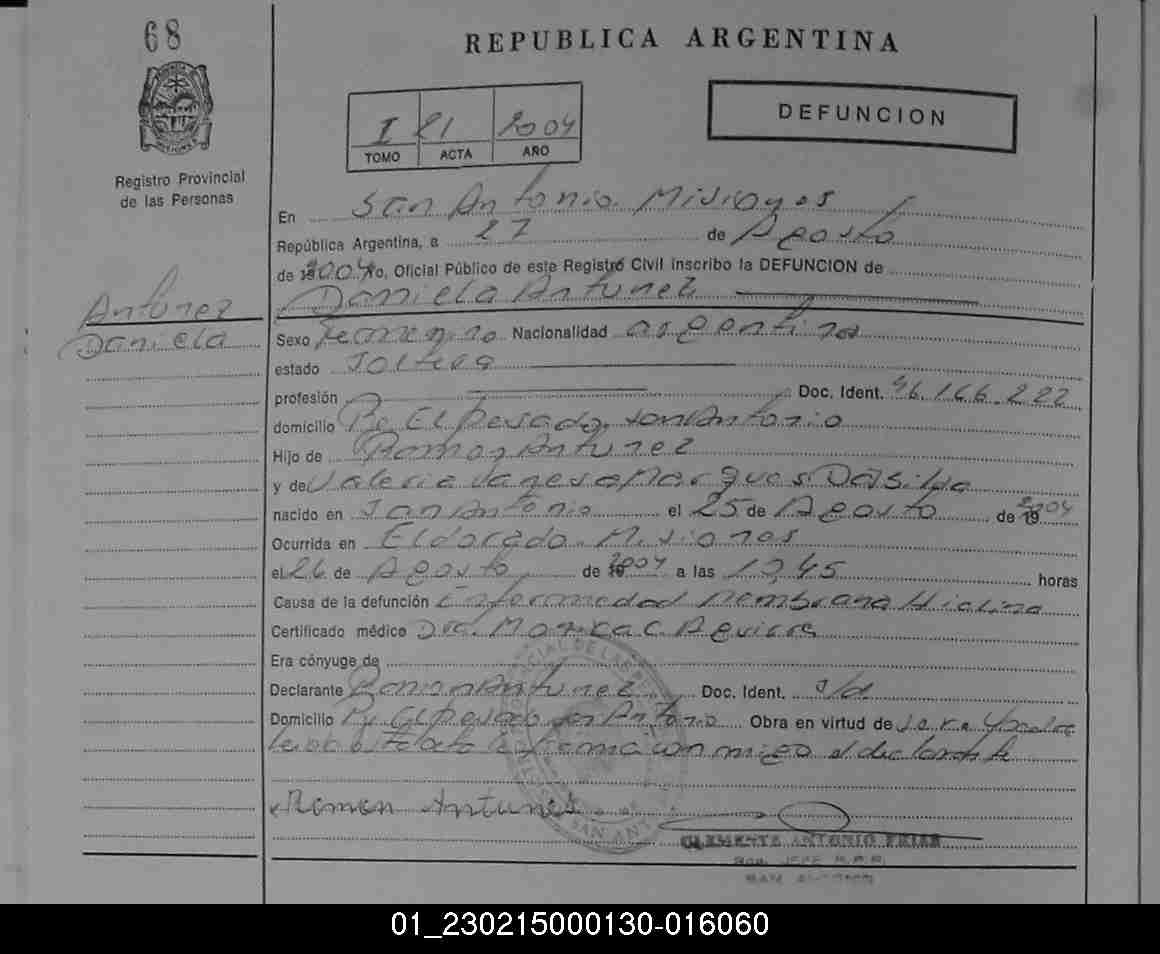 68
REPUBLICA ARGENTINA
DEFUNCION
I 21 2004
TOMO ACTA AÑO
Registro Provincial
de las Personas
En San Antonio Misiones
República Argentina, a 27 de Agosto
de 2004 Yo, Oficial Público de este Registro Civil inscribo la DEFUNCION de
Daniela Antunez
Antunez
Daniela
Sexo Femenino Nacionalidad argentina
estado Soltera
profesión Doc. Ident. 46.166.222
domicilio Pje El Pesado, San Antonio
Hijo de Ramon Antunez
y de Valeria Vanesa Marques Da Silva
nacido en San Antonio el 25 de Agosto de 19 2004
Ocurrida en Eldorado. Misiones
el 26 de Agosto de 19 2004 a las 12,45 horas
Causa de la defunción Enfermedad Membrana Hialina
Certificado médico Dra. Monica C. Aguirre
Era cónyuge de
Declarante Ramon Antunez Doc. Ident. s/d
Domicilio Pje El Pesado San Antonio Obra en virtud de
el acta la firma con migo el declarante
Ramon Antunes
SAN ANT
CLEMENTE ANTONIO FRIAS
JEFE R.P.P.
SAN ANTONIO
01_230215000130-016060